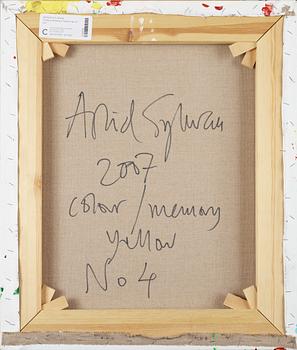 Astrid Sylwan
2007
colour/memory
yellow
No 4